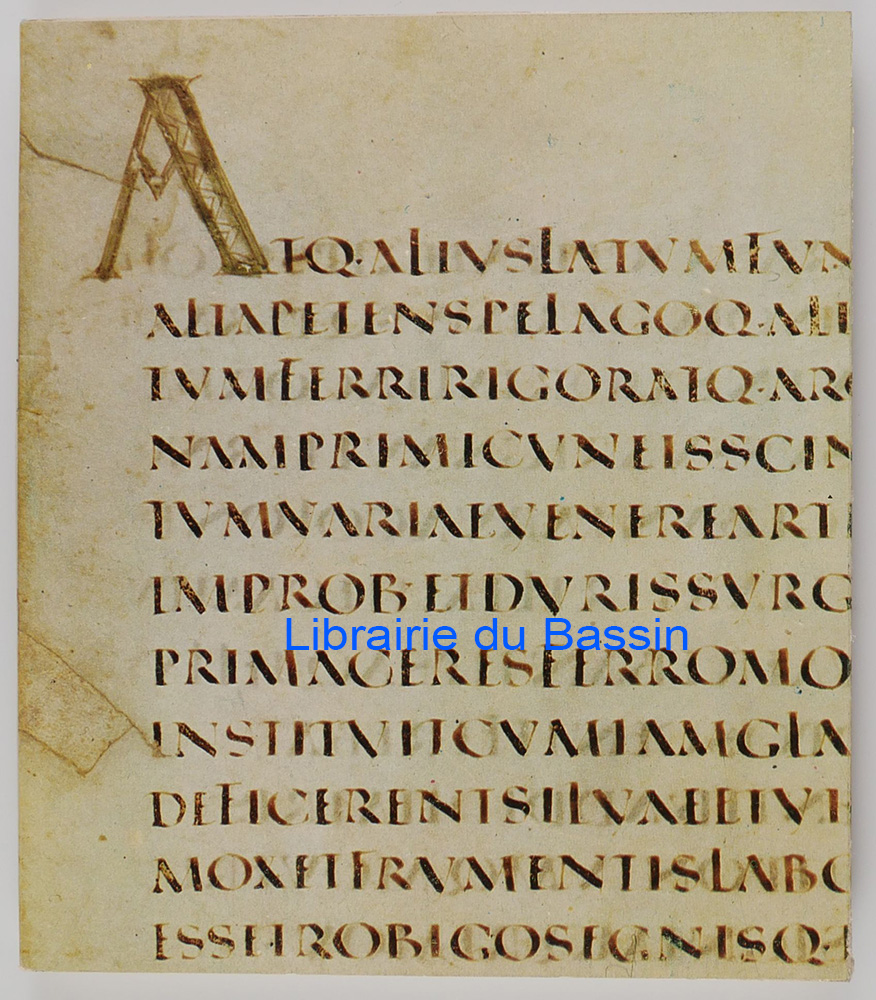 ATQ·ALIVSLATVMFVN
ALTAPETENSPELAGOQ·ALI
TVMFERRIRIGORATQ·ARG
NAMPRIMICVNEISSCIN
TVMVARIAEVENEREART
IMPROB·ETDVRISSVRG
Librairie du Bassin
PRIMACERESFERROMO
INSTITVITCVMIAMGLA
DEFICERENTSILVAEETVI
MOXETFRVMENTISLABO
ESSETROBIGOSEGNISQ·